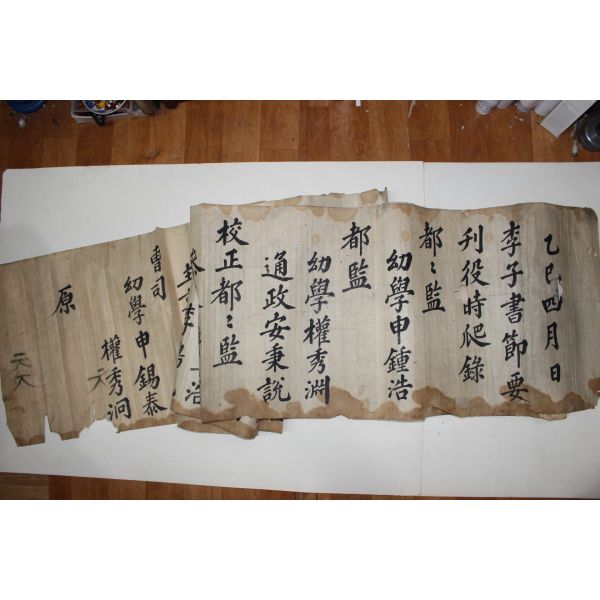 乙巳四月日
李子書節要
刊役時爬錄
都〻監
幼學申鍾浩
都監
幼學權秀淵
通政安秉說
校正都〻監
曹司
幼學申錫泰
權秀泂
原